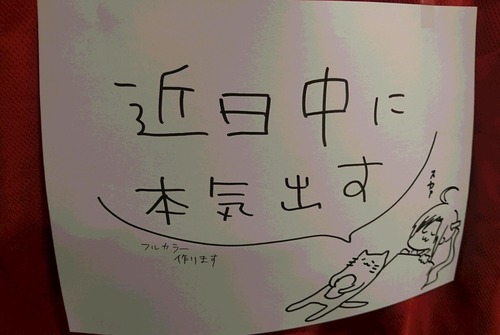 近日中に
本気出す
フルカラー
作ります